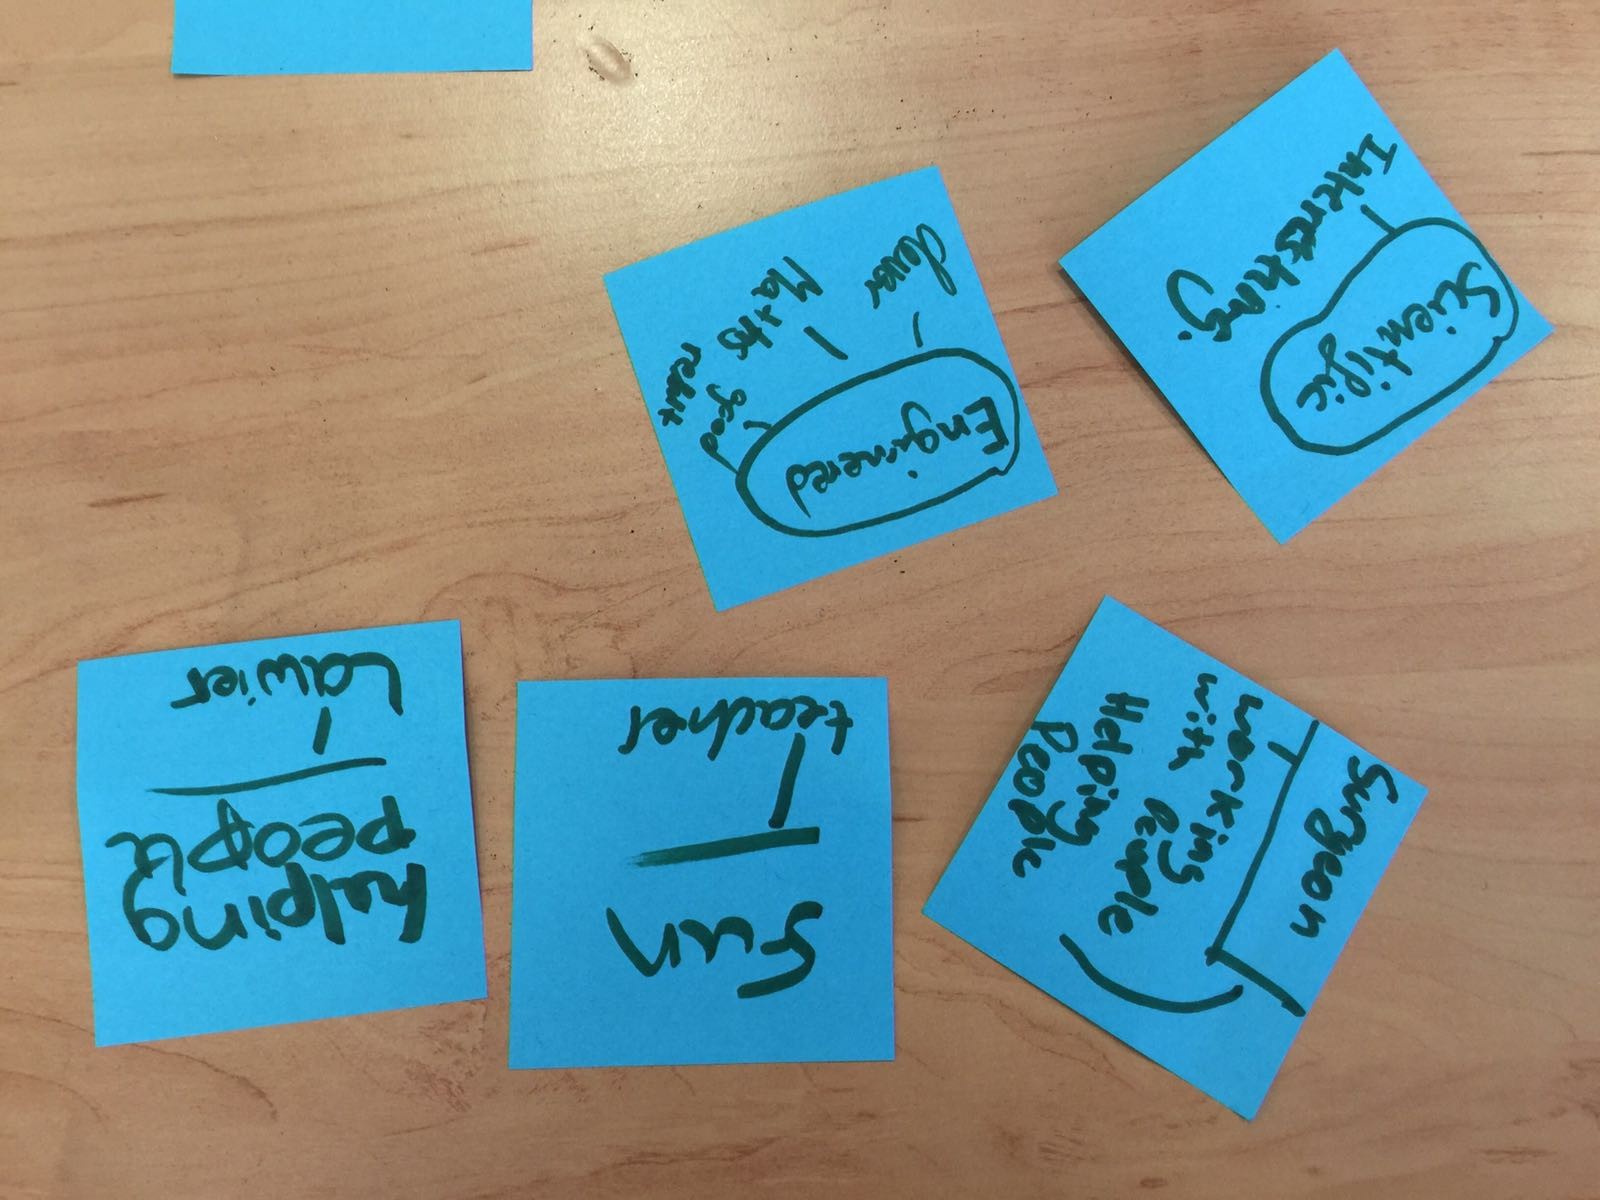 Scientific
Interesting.
Enginered
clever
Maths
good
result
Surgeon
working
with People
Helping
People
fun
teacher
helping
people
Lawier